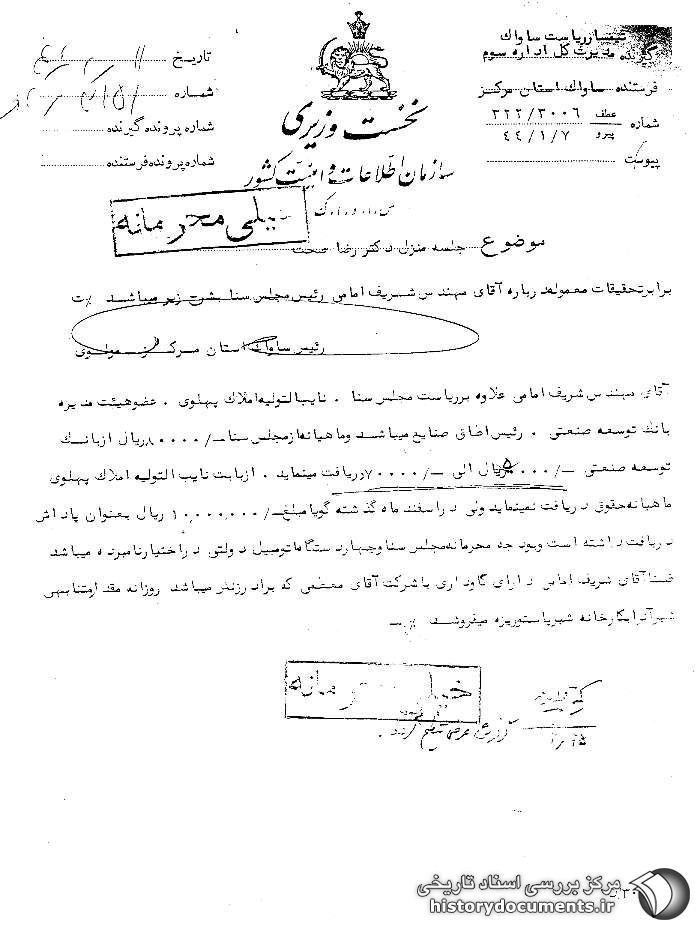 تیمسار ریاست ساواک
گیرنده مدیریت کل اداره سوم
فرستنده ساواک استان مرکز
شماره عطف ۳۲۲/۳۰۰۶
پیرو ۴۴/۱/۷
پیوست
نخست وزیری
سازمان اطلاعات و امنیت کشور
س.ا.و.ا.ک
تاریخ
شماره
شماره پرونده گیرنده
شماره پرونده فرستنده
خیلی محرمانه
موضوع جلسه منزل دکتر رضا صحت
برابر تحقیقات معموله درباره آقای مهندس شریف امامی رئیس مجلس سنا بشرح زیر میباشد
رئیس ساواک استان مرکز مولوی
آقای مهندس شریف امامی علاوه بر ریاست مجلس سنا . نایب التولیه املاک پهلوی . عضو هیئت مدیره
بانک توسعه صنعتی . رئیس اطاق صنایع میباشد و ماهیانه از مجلس سنا -/۸۰۰۰۰ ریال از بانک
توسعه صنعتی -/۵۰۰۰۰ ریال الی -/۷۰۰۰۰ دریافت مینماید . از بابت نایب التولیه املاک پهلوی
ماهیانه حقوقی دریافت نمینماید ولی در اسفند ماه گذشته گویا مبلغ -/۱۰,۰۰۰,۰۰۰ ریال بعنوان پاداش
دریافت داشته است وبودجه محرمانه مجلس سنا وچهار دستگاه اتومبیل دولتی در اختیار نامبرده میباشد
ضمنا آقای شریف امامی دارای گاوداری با شرکت آقای معظمی که برادرزنش میباشد روزانه مقدار متنابهی
شیر آنرا بکارخانه شیر پاستوریزه میفروشد
خیلی محرمانه
گزارش عرض تنظیم گردد .
مرکز بررسی اسناد تاریخی
historydocuments.ir